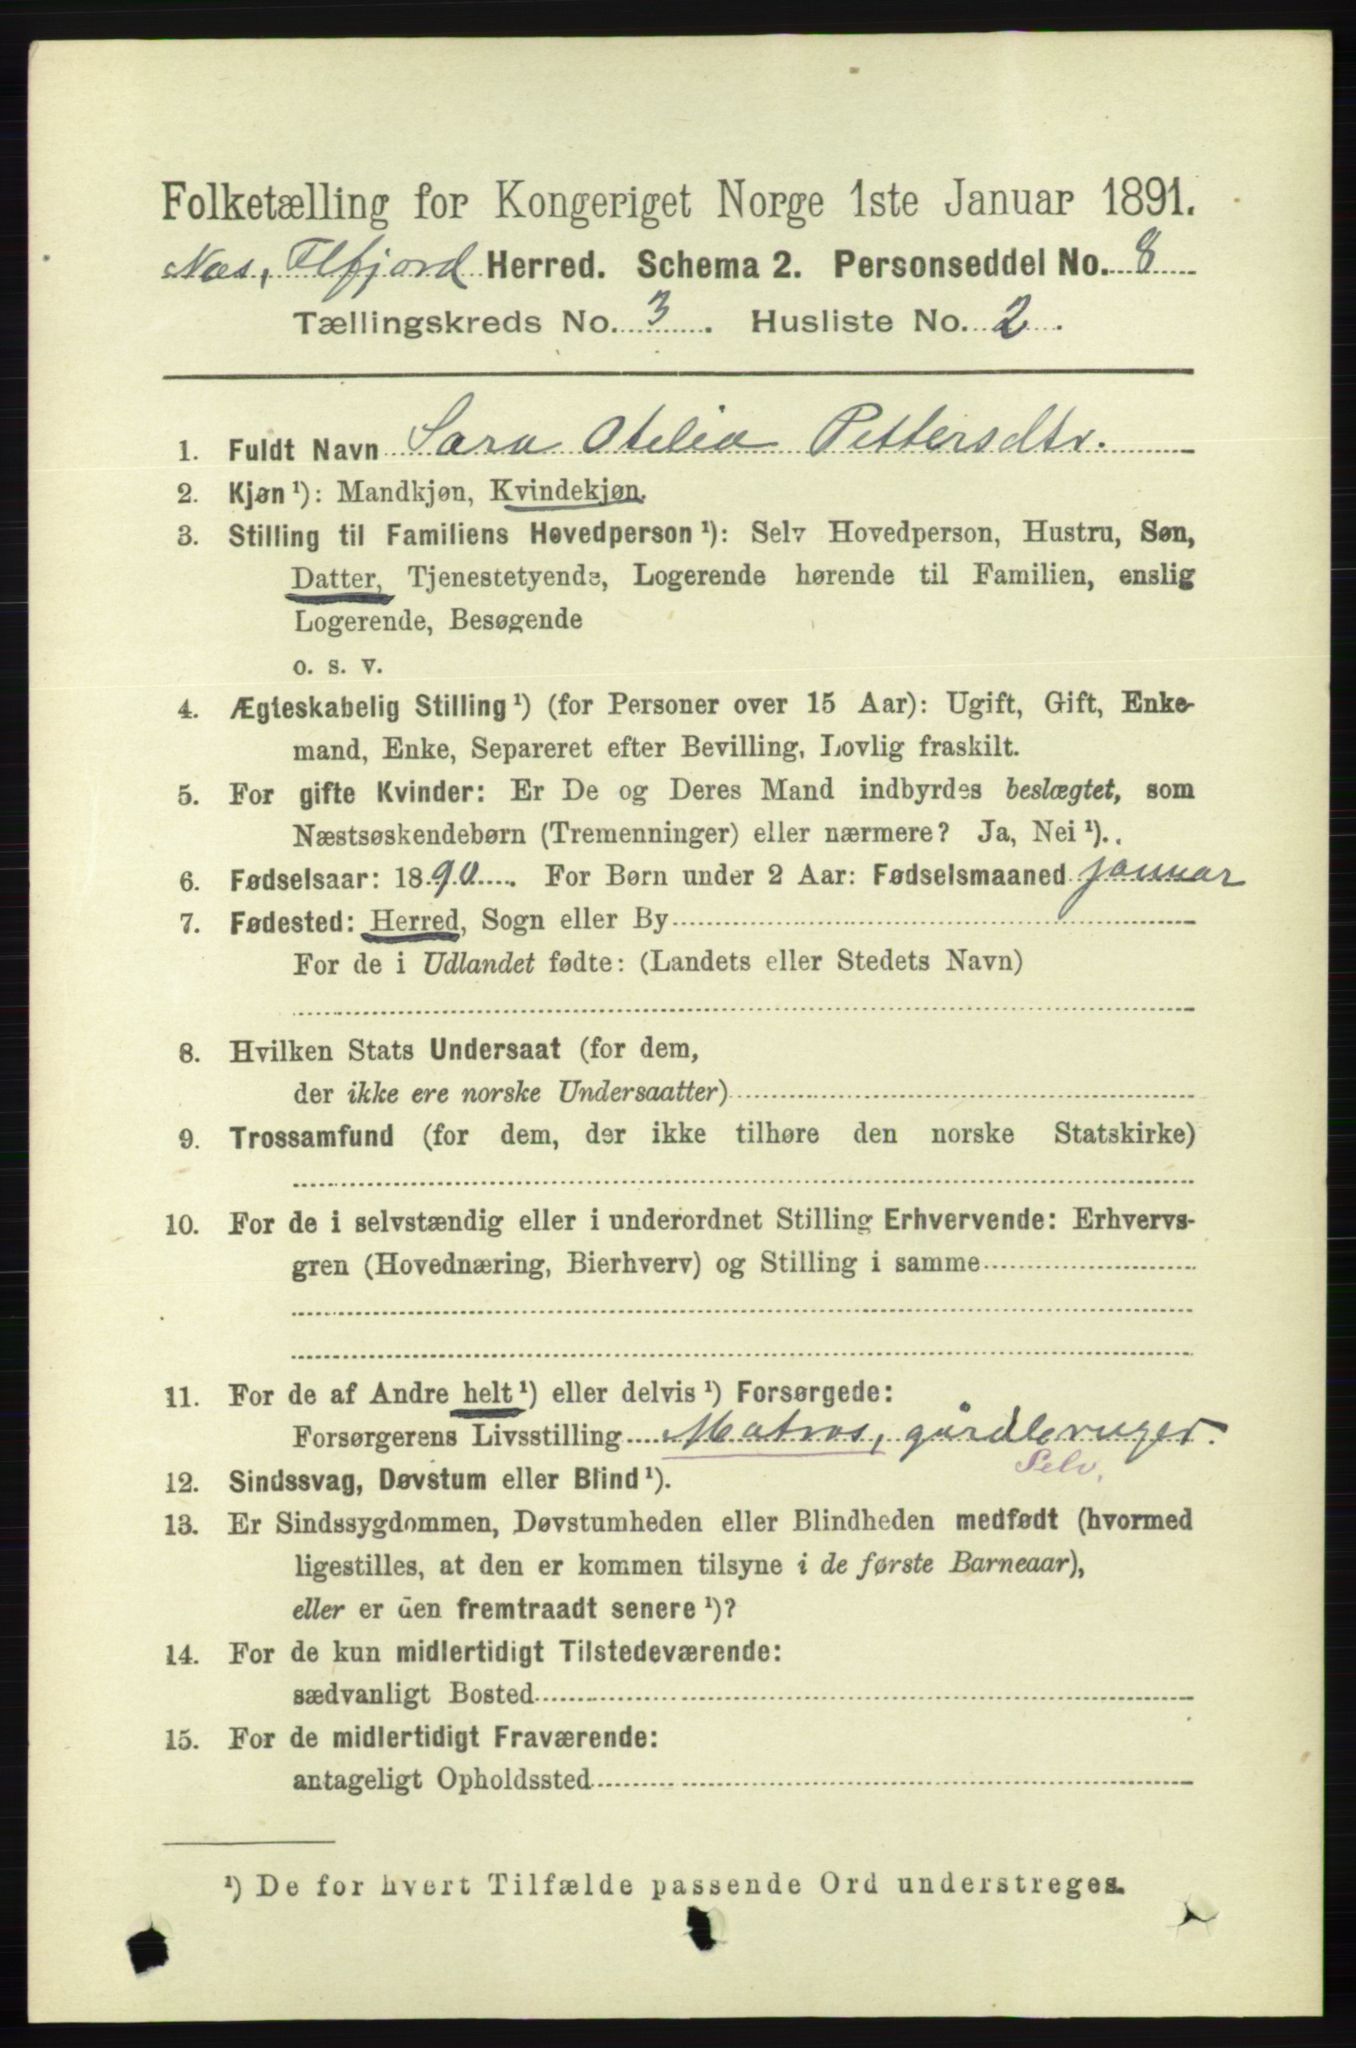 Folketælling for Kongeriget Norge 1ste Januar 1891.
Næs, Flfjord Herred. Schema 2. Personseddel No. 8
Tællingskreds No. 3. Husliste No. 2.
1. Fuldt Navn Sara Otelia Pettersdtr.
2. Kjøn ¹): Mandkjøn, Kvindekjøn.
3. Stilling til Familiens Hovedperson ¹): Selv Hovedperson, Hustru, Søn,
Datter, Tjenestetyende, Logerende hørende til Familien, enslig
Logerende, Besøgende
o. s. v.
4. Ægteskabelig Stilling ¹) (for Personer over 15 Aar): Ugift, Gift, Enke-
mand, Enke, Separeret efter Bevilling, Lovlig fraskilt.
5. For gifte Kvinder: Er De og Deres Mand indbyrdes beslægtet, som
Næstsøskendebørn (Tremenninger) eller nærmere? Ja, Nei ¹).
6. Fødselsaar: 1890. For Børn under 2 Aar: Fødselsmaaned januar
7. Fødested: Herred, Sogn eller By
For de i Udlandet fødte: (Landets eller Stedets Navn)
8. Hvilken Stats Undersaat (for dem,
der ikke ere norske Undersaatter)
9. Trossamfund (for dem, der ikke tilhøre den norske Statskirke)
10. For de i selvstændig eller i underordnet Stilling Erhvervende: Erhvervs-
gren (Hovednæring, Bierhverv) og Stilling i samme
11. For de af Andre helt ¹) eller delvis ¹) Forsørgede:
Forsørgerens Livsstilling Matros, gårdbruger.
Selv.
12. Sindssvag, Døvstum eller Blind ¹).
13. Er Sindssygdommen, Døvstumheden eller Blindheden medfødt (hvormed
ligestilles, at den er kommen tilsyne i de første Barneaar),
eller er den fremtraadt senere ¹)?
14. For de kun midlertidigt Tilstedeværende:
sædvanligt Bosted
15. For de midlertidigt Fraværende:
antageligt Opholdssted
¹) De for hvert Tilfælde passende Ord understreges.